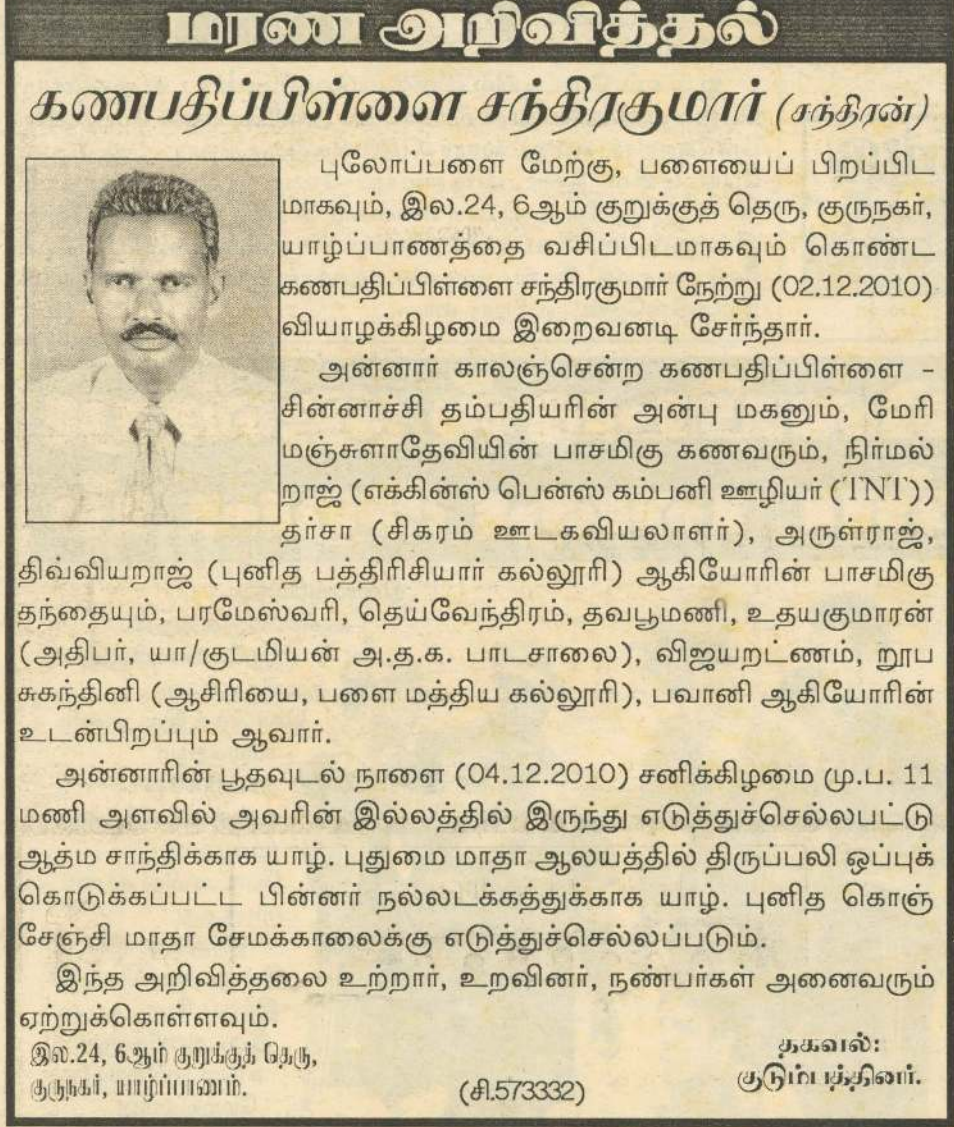 மரண அறிவித்தல்
கணபதிப்பிள்ளை சந்திரகுமார் (சந்திரன்)
புலோப்பளை மேற்கு, பளையைப் பிறப்பிட
மாகவும், இல.24, 6ஆம் குறுக்குத் தெரு, குருநகர்,
யாழ்ப்பாணத்தை வசிப்பிடமாகவும் கொண்ட
கணபதிப்பிள்ளை சந்திரகுமார் நேற்று (02.12.2010)
வியாழக்கிழமை இறைவனடி சேர்ந்தார்.
அன்னார் காலஞ்சென்ற கணபதிப்பிள்ளை –
சின்னாச்சி தம்பதியரின் அன்பு மகனும், மேரி
மஞ்சுளாதேவியின் பாசமிகு கணவரும், நிர்மல்
றாஜ் (எக்கின்ஸ் பென்ஸ் கம்பனி ஊழியர் (TNT))
தர்சா (சிகரம் ஊடகவியலாளர்), அருள்ராஜ்,
திவ்வியறாஜ் (புனித பத்திரிசியார் கல்லூரி) ஆகியோரின் பாசமிகு
தந்தையும், பரமேஸ்வரி, தெய்வேந்திரம், தவபூமணி, உதயகுமாரன்
(அதிபர், யா/குடமியன் அ.த.க. பாடசாலை), விஜயறட்ணம், றூப
சுகந்தினி (ஆசிரியை, பளை மத்திய கல்லூரி), பவானி ஆகியோரின்
உடன்பிறப்பும் ஆவார்.
அன்னாரின் பூதவுடல் நாளை (04.12.2010) சனிக்கிழமை மு.ப. 11
மணி அளவில் அவரின் இல்லத்தில் இருந்து எடுத்துச்செல்லபட்டு
ஆத்ம சாந்திக்காக யாழ். புதுமை மாதா ஆலயத்தில் திருப்பலி ஒப்புக்
கொடுக்கப்பட்ட பின்னர் நல்லடக்கத்துக்காக யாழ். புனித கொஞ்
சேஞ்சி மாதா சேமக்காலைக்கு எடுத்துச்செல்லப்படும்.
இந்த அறிவித்தலை உற்றார், உறவினர், நண்பர்கள் அனைவரும்
ஏற்றுக்கொள்ளவும்.
இல.24, 6ஆம் குறுக்குத் தெரு,
குருநகர், யாழ்ப்பாணம்.
(சி.573332)
தகவல்:
குடும்பத்தினர்.